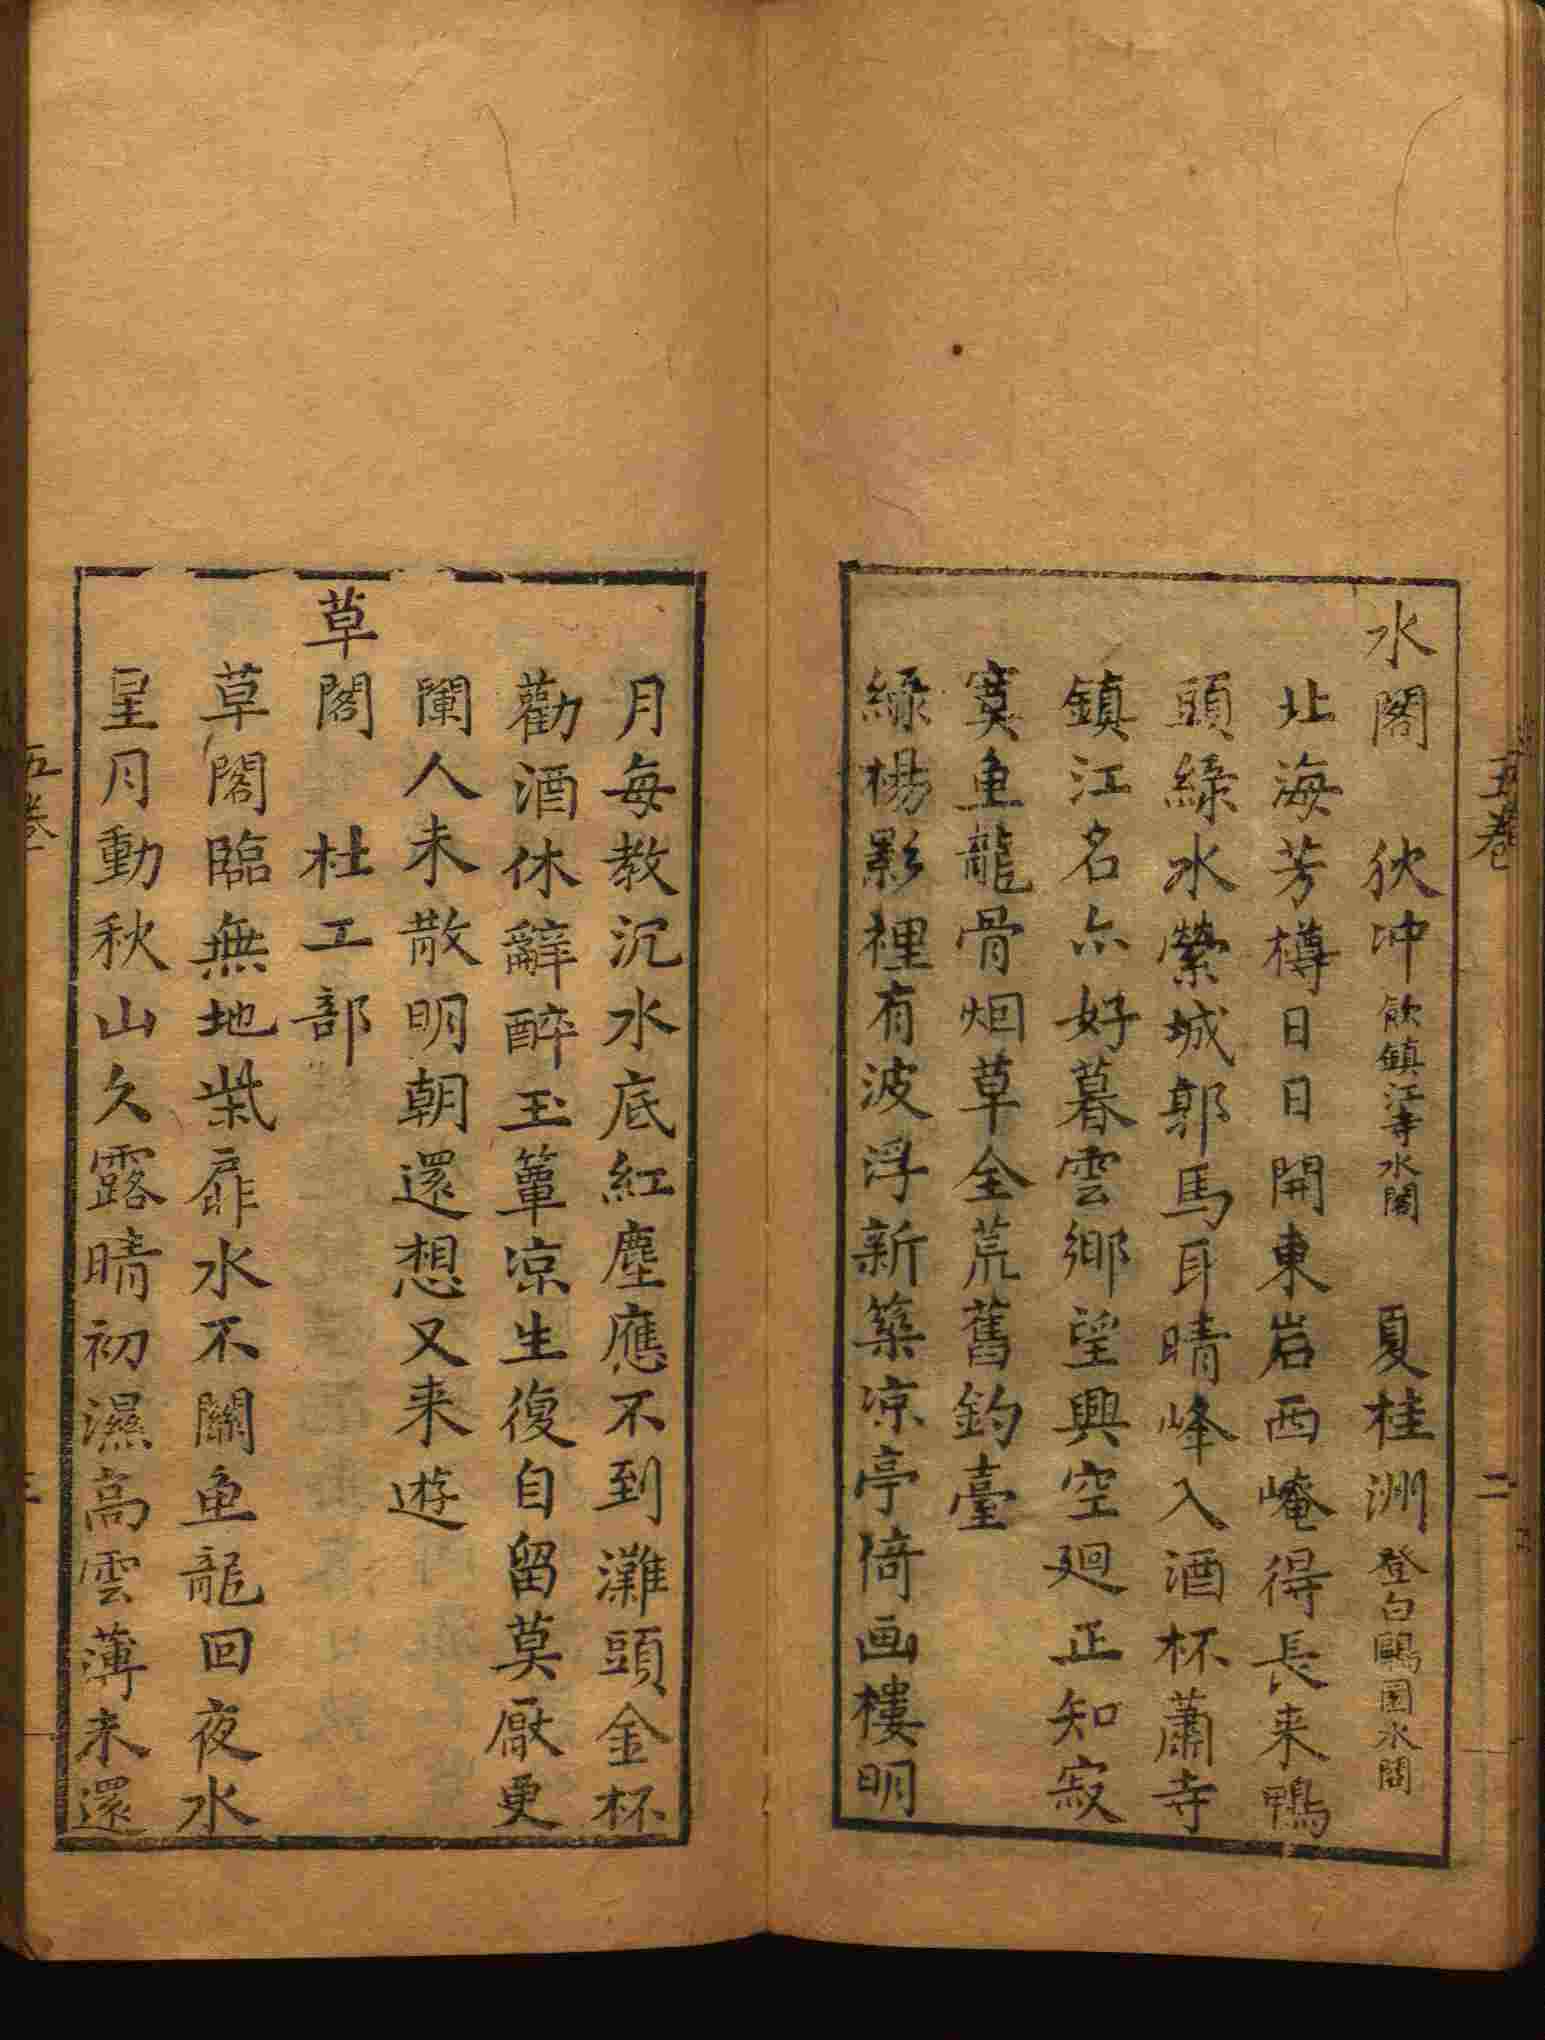 水閣 狄冲 飲鎮江寺水閣 夏桂洲 登白鷗園水閣
北海芳樽日日開東岩西崦得長来鴨
頭綠水縈城郭馬耳晴峰入酒杯蕭寺
鎮江名亦好暮雲鄉望興空廻正知寂
寞魚龍骨烟草全荒舊釣臺
綠楊影裡有波浮新築凉亭倚画樓明
月每教沉水底紅塵應不到灘頭金杯
勸酒休辭醉玉簟凉生復自留莫厭更
闌人未散明朝還想又来遊
草閣 杜工部
草閣臨無地柴扉水不關魚龍回夜水
星月動秋山久露晴初濕高雲薄未還
五卷
二
五卷